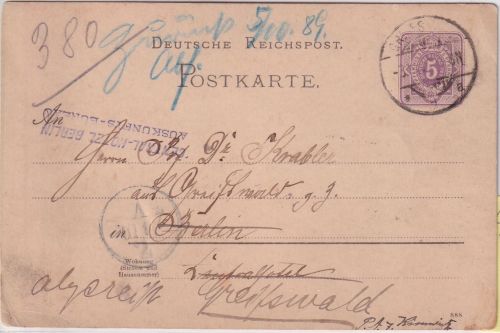 380
5/10. 89.
DEUTSCHE REICHSPOST.
POSTKARTE.
5
An
CENTRAL-HOTEL BERLIN
AUSKUNFTS-BUREAU
Herrn Prof Dr Krabler
aus Greifswald z. Z.
in Berlin
Wohnung
(Strasse und
Hausnummer)
Centralhotel
abgereist Greifswald
888